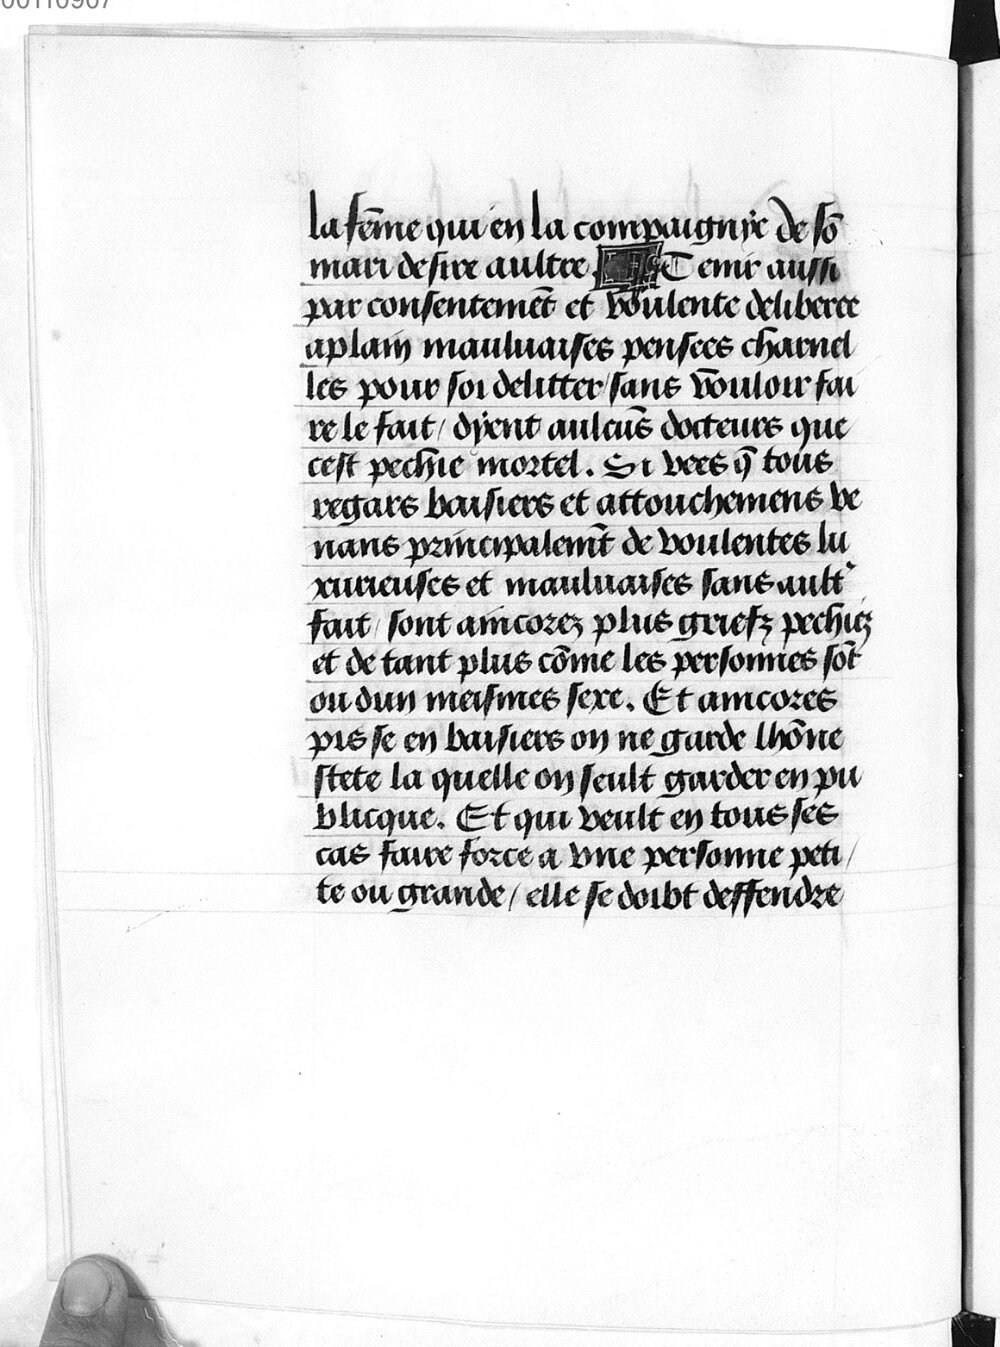 00110907
la fēme qui en la compaignÿe de sō
mari desire aultre Tenir aussi
par consentemēt et voulente deliberee
aplain mauluaises pensees charnel
les pour soi delitter/sans vouloir fai
re le fait/ dÿent aulcūs docteurs que
cest pechie mortel. Si vees q̄ tous
regars baisiers et attouchemens ve
nans principalemt̄ de voulentes lu
xurieuses et mauluaises sans ault
fait/ sont aincorez plus griefz pechiez
et de tant plus cōme les personnes sōt
ou dun meismes sexe. Et aincores
pis se en baisiers on ne garde lhōne
stete la quelle on seult garder en pu
blicque. Et qui veult en tous ses
cas faire force a vne personne peti/
te ou grande/ elle se doibt deffendre